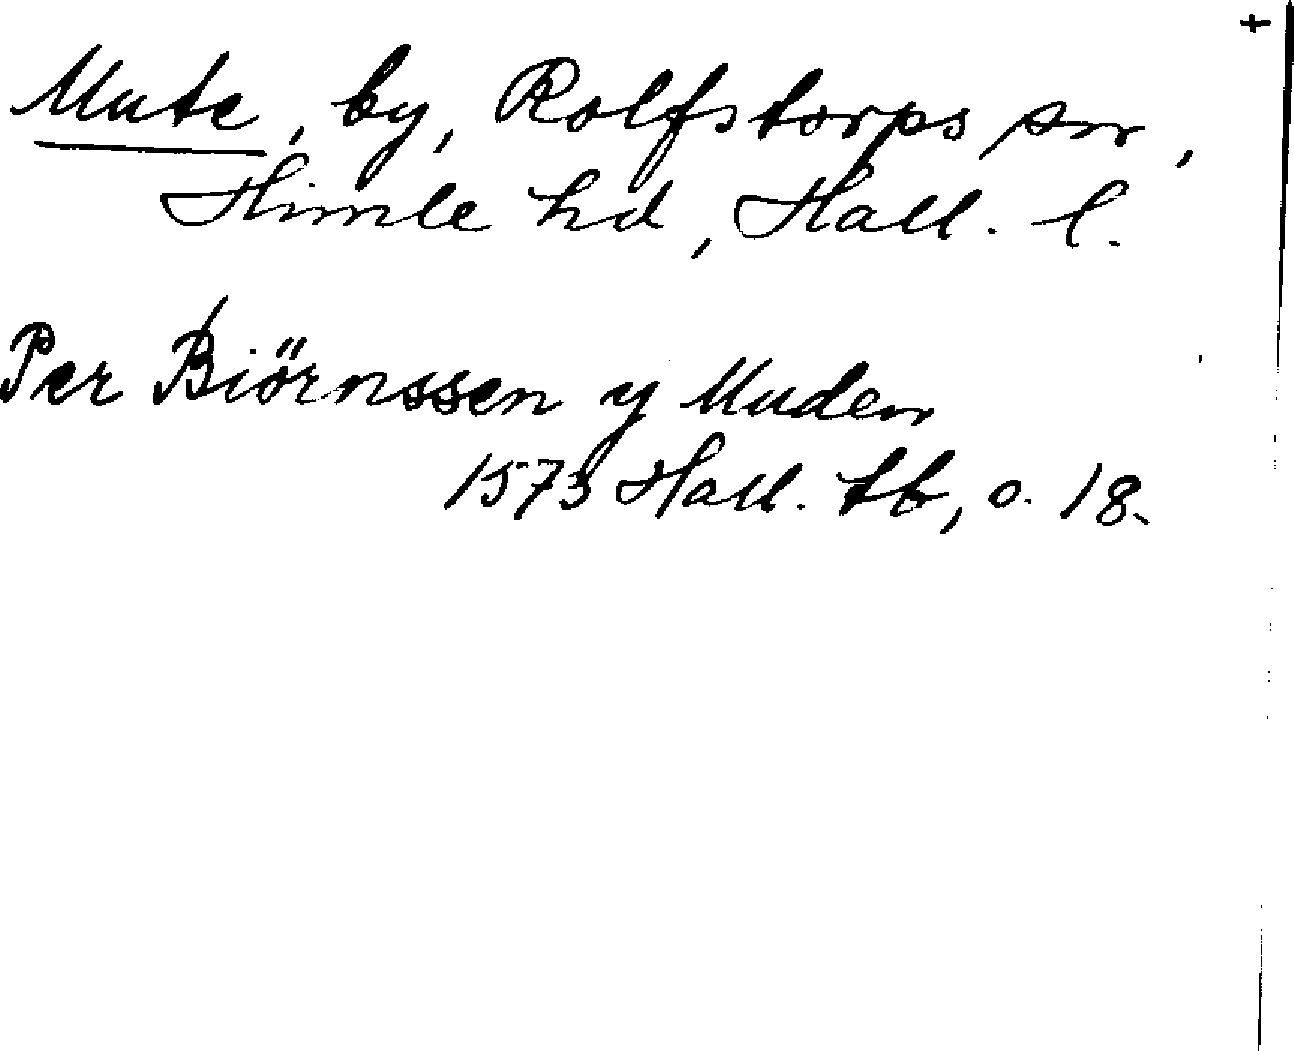 +
Mute, by, Rolfstorps sn,
Himle hd, Hall. l.
Per Biörnssen y Muden
1573 Hall. tb, o. 18.